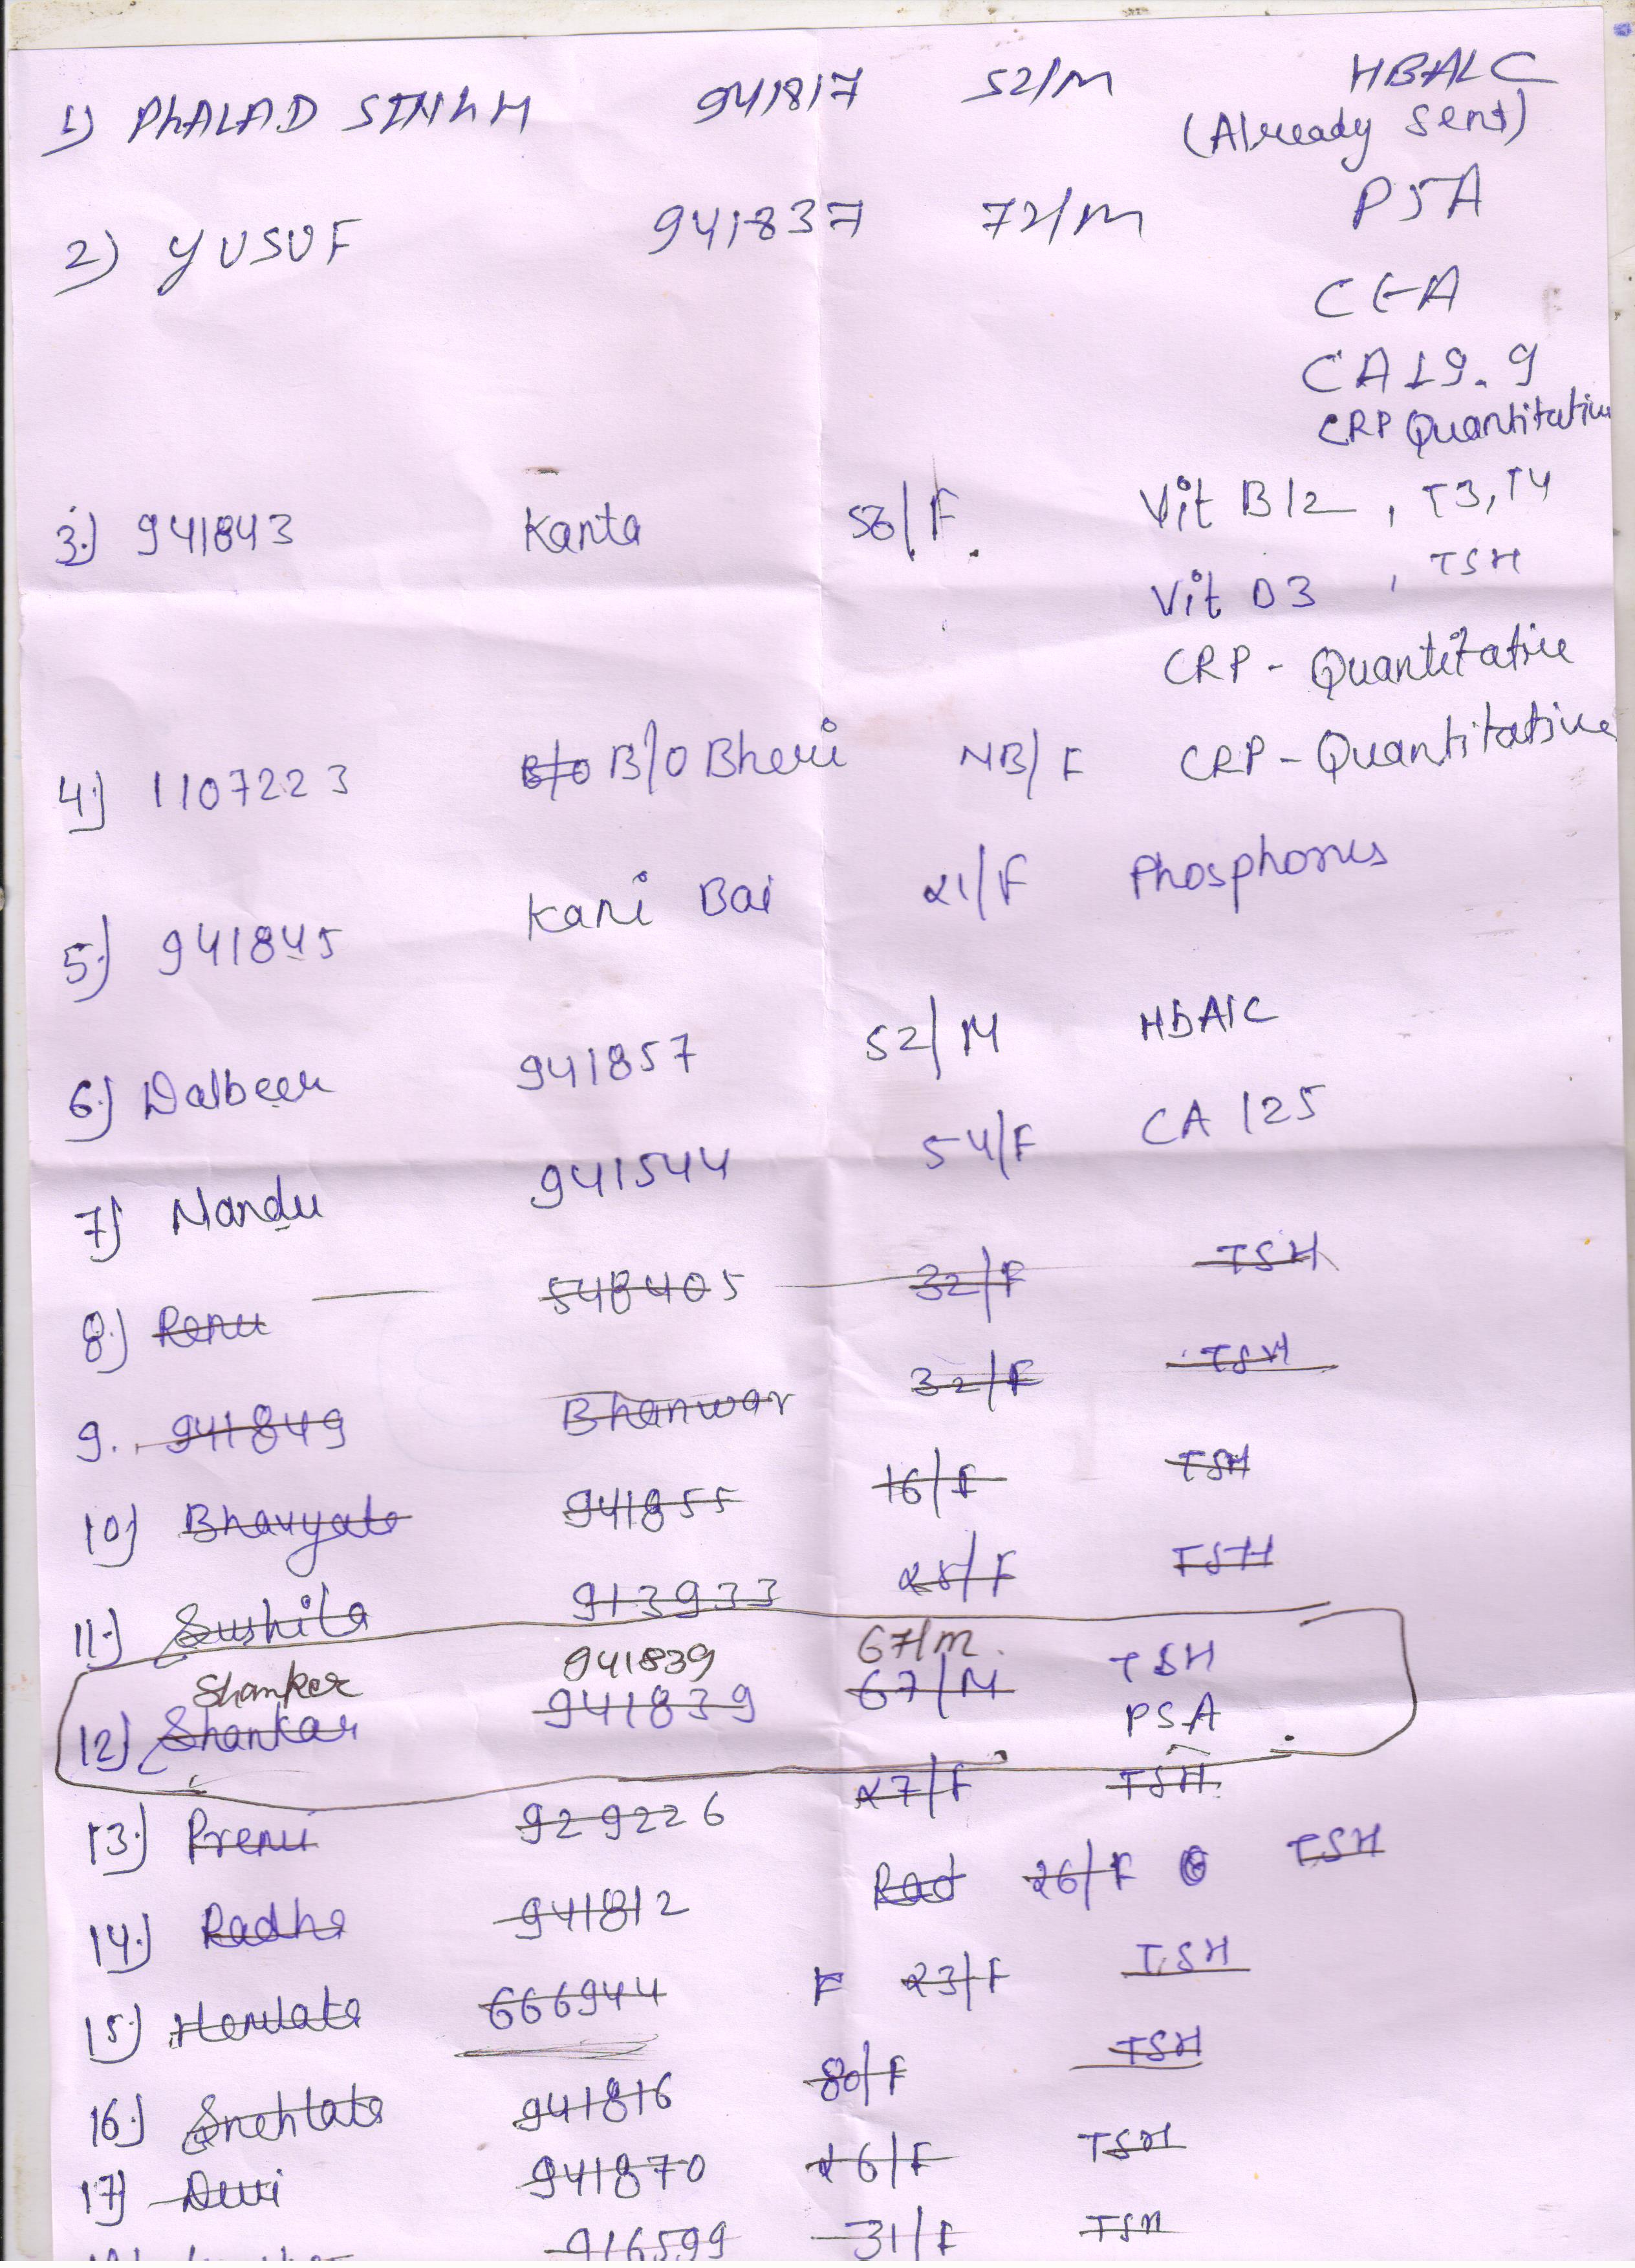 1) PhALAD SINhH 941817 52/M HBA1C
(Already Sent)
2) YUSUF 941837 72/M PSA
CEA
CA 19.9
CRP Quantitative
3.) 941843 Kanta 58/F Vit B12, T3, T4
Vit D3, TSH
CRP - Quantitative
4.) 1107223 B/O B/O Bheri NB/F CRP - Quantitative
5.) 941845 Kani Bai 21/F Phosphorus
6.) Dalbeer 941857 52/M HbA1C
7.) Nandu 941544 54/F CA 125
8.) Renu 548405 32/F TSH
9. 941849 Bhanwar 32/F TSH
10.) Bhavyata 941855 16/F TSH
11.) Sushila 913933 28/F TSH
Shanker 941839 67/M. TSH
12.) Shankar 941839 67/M PSA
13.) Premi 929226 27/F TSH
14.) Radha 941812 Rad 26/F TSH
15.) Hemlata 666944 F 23/F TSH
16.) Snehlata 941816 80/F TSH
17.) Devi 941870 26/F TSH
916599 31/F TSH